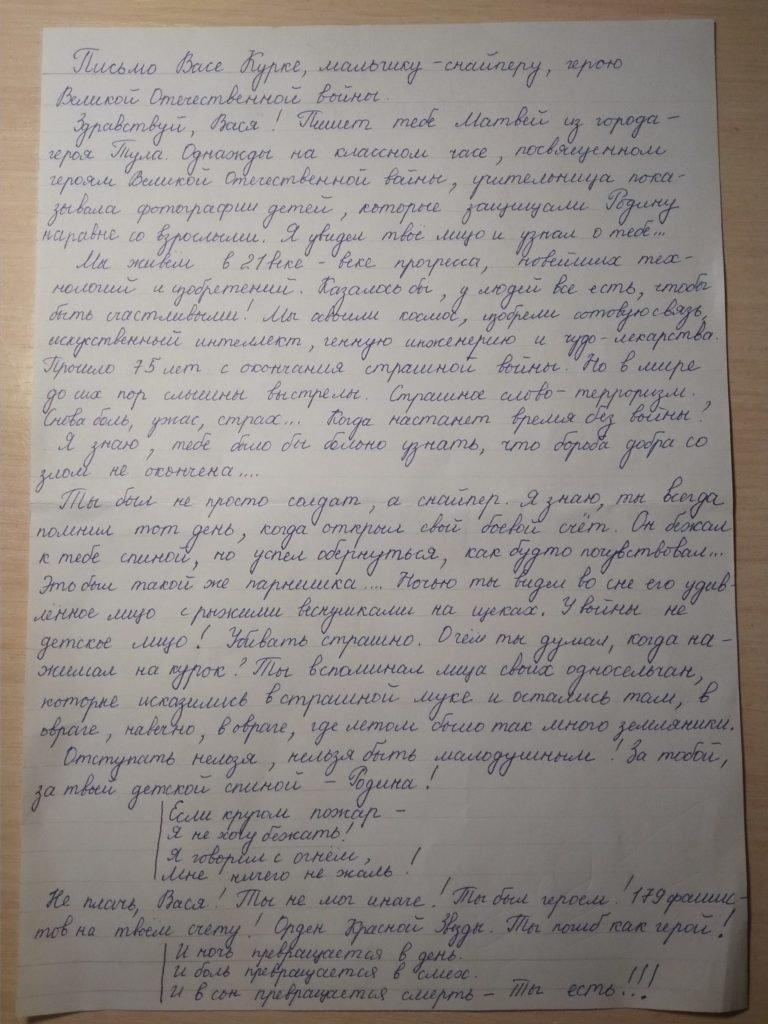 Письмо Васе Курке, мальчику-снайперу, герою
Великой Отечественной войны.
Здравствуй, Вася! Пишет тебе Матвей из города-
героя Тула. Однажды на классном часе, посвященном
героям Великой Отечественной войны, учительница пока-
зывала фотографии детей, которые защищали Родину
наравне со взрослыми. Я увидел твоё лицо и узнал о тебе...
Мы живём в 21 веке - веке прогресса, новейших тех-
нологий и изобретений. Казалось бы, у людей все есть, чтобы
быть счастливыми! Мы освоили космос, изобрели сотовую связь,
искуственный интеллект, генную инженерию и чудо-лекарства.
Прошло 75 лет с окончания страшной войны. Но в мире
до сих пор слышны выстрелы. Страшное слово - терроризм.
Снова боль, ужас, страх... Когда настанет время без войны?
Я знаю, тебе было бы больно узнать, что борьба добра со
злом не окончена....
Ты был не просто солдат, а снайпер. Я знаю, ты всегда
помнил тот день, когда открыл свой боевой счёт. Он бежал
к тебе спиной, но успел обернуться, как будто почувствовал...
Это был такой же парнишка.... Ночью ты видел во сне его удив-
лённое лицо с рыжими веснушками на щеках. У войны не
детское лицо! Убивать страшно. О чём ты думал, когда на-
жимал на курок? Ты вспоминал лица своих односельчан,
которые исказились в страшной муке и остались там, в
овраге, навечно, в овраге, где летом было так много земляники.
Отступать нельзя, нельзя быть малодушным! За тобой,
за твоей детской спиной - Родина!
Если кругом пожар -
Я не хочу бежать!
Я говорил с огнём,
Мне ничего не жаль!
Не плачь, Вася! Ты не мог иначе! Ты был героем! 179 фашис-
тов на твоём счету! Орден Красной Звезды. Ты погиб как герой!
И ночь превращается в день.
И боль превращается в смех.
И в сон превращается смерть - Ты есть!!!